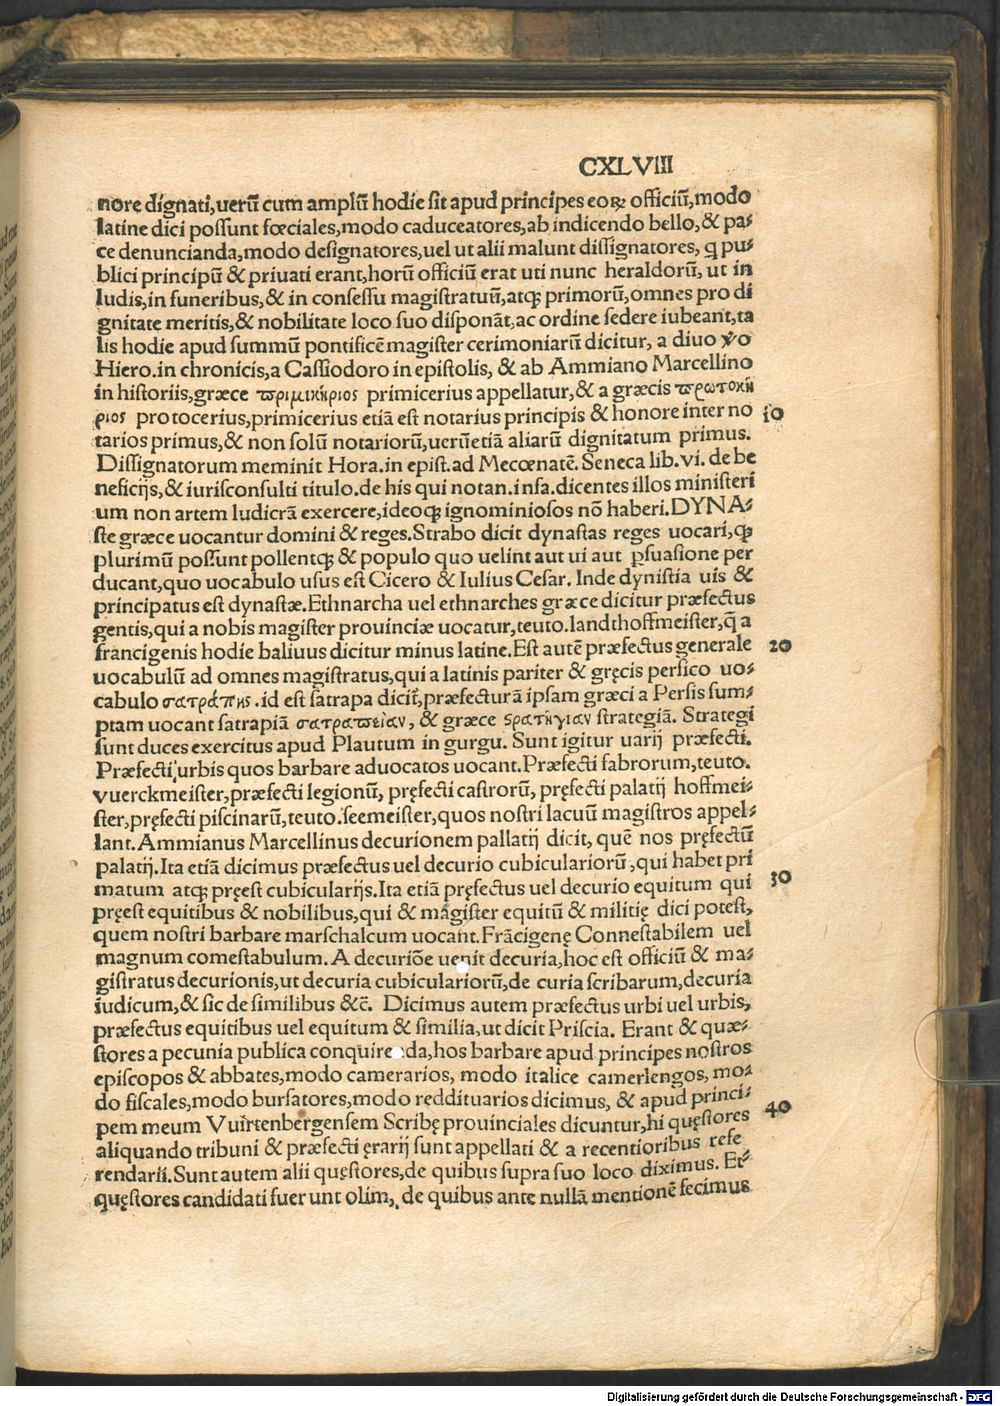 CXLVIII
nore dignati,uerũ cum amplũ hodie ſit apud principes eoꝝ officiũ,modo
latine dici poſſunt fœciales,modo caduceatores,ab indicendo bello,& pa⸗
ce denuncianda,modo deſignatores,uel ut alii malunt diſſignatores, ꝗ pu⸗
blici principũ & priuati erant,horũ officiũ erat uti nunc heraldorũ, ut in
ludis,in funeribus,& in conſeſſu magiſtratuũ,atqꝫ primorũ,omnes pro di
gnitate meritis,& nobilitate loco ſuo diſponãt,ac ordine ſedere iubeant,ta
lis hodie apud ſummũ pontificẽ magiſter cerimoniarũ dicitur, a diuo ỽo
Hiero.in chronicis,a Caſſiodoro in epiſtolis, & ab Ammiano Marcellino
in hiſtoriis,græce πριμικήριος primicerius appellatur,& a græcis πρωτοκή
ριος protocerius,primicerius etiã eſt notarius principis & honore inter no 10
tarios primus,& non ſolũ notariorũ,uerũetiã aliarũ dignitatum primus.
Diſſignatorum meminit Hora.in epiſt.ad Mecœnatẽ. Seneca lib.vi. de be
neficijs,& iurisconſulti titulo.de his qui notan.infa.dicentes illos miniſteri
um non artem ludicrã exercere,ideoqꝫ ignominioſos nõ haberi.DYNA⸗
ſte græce uocantur domini & reges.Strabo dicit dynaſtas reges uocari,ꝙ
plurimũ poſſunt pollentqꝫ & populo quo uelint aut ui aut ꝑſuaſione per
ducant,quo uocabulo uſus eſt Cicero & Iulius Ceſar. Inde dyniſtia uis &
principatus eſt dynaſtæ.Ethnarcha uel ethnarches græce dicitur præfectus
gentis,qui a nobis magiſter prouinciæ uocatur,teuto.landthoffmeiſter,q̃ a
francigenis hodie baliuus dicitur minus latine.Eſt autẽ præfectus generale 20
uocabulũ ad omnes magiſtratus,qui a latinis pariter & gręcis perſico uo⸗
cabulo σατράπης .id eſt ſatrapa dicit̃,præfecturã ipſam græci a Perſis ſum⸗
ptam uocant ſatrapiã σατραπείαν, & græce ϛρατηγίαν ſtrategiã. Strategi
ſunt duces exercitus apud Plautum in gurgu. Sunt igitur uarij præfecti.
Præfecti urbis quos barbare aduocatos uocant.Præfecti fabrorum,teuto.
vuerckmeiſter,præfecti legionũ, pręfecti caſtrorũ, pręfecti palatij hoffmei⸗
ſter,pręfecti piſcinarũ,teuto.ſeemeiſter,quos noſtri lacuũ magiſtros appel⸗
lant.Ammianus Marcellinus decurionem pallatij dicit, quẽ nos pręfectũ
palatij.Ita etiã dicimus præfectus uel decurio cubiculariorũ,qui habet pri
matum atqꝫ pręeſt cubicularijs.Ita etiã pręfectus uel decurio equitum qui 30
pręeſt equitibus & nobilibus,qui & magiſter equitũ & militię dici poteſt,
quem noſtri barbare marſchalcum uocant.Frãcigenę Conneſtabilem uel
magnum comeſtabulum. A decuriõe uenit decuria,hoc eſt officiũ & ma⸗
giſtratus decurionis,ut decuria cubiculariorũ,de curia ſcribarum,decuria
iudicum,& ſic de ſimilibus &c̃. Dicimus autem præfectus urbi uel urbis,
præfectus equitibus uel equitum & ſimilia,ut dicit Priſcia. Erant & quæ⸗
ſtores a pecunia publica conquirenda,hos barbare apud principes noſtros
epiſcopos & abbates,modo camerarios, modo italice camerlengos, mo⸗
do fiſcales,modo burſatores,modo reddituarios dicimus, & apud princi⸗
pem meum Vuirtenbergenſem Scribę prouinciales dicuntur,hi quęſtores 40
aliquando tribuni & præfecti ęrarij ſunt appellati & a recentioribus refe
rendarii.Sunt autem alii quęſtores,de quibus ſupra ſuo loco diximus. Et⸗
quęſtores candidati fuerunt olim, de quibus ante nullã mentionẽ fecimus
Digitalisierung gefördert durch die Deutsche Forschungsgemeinschaft - DFG